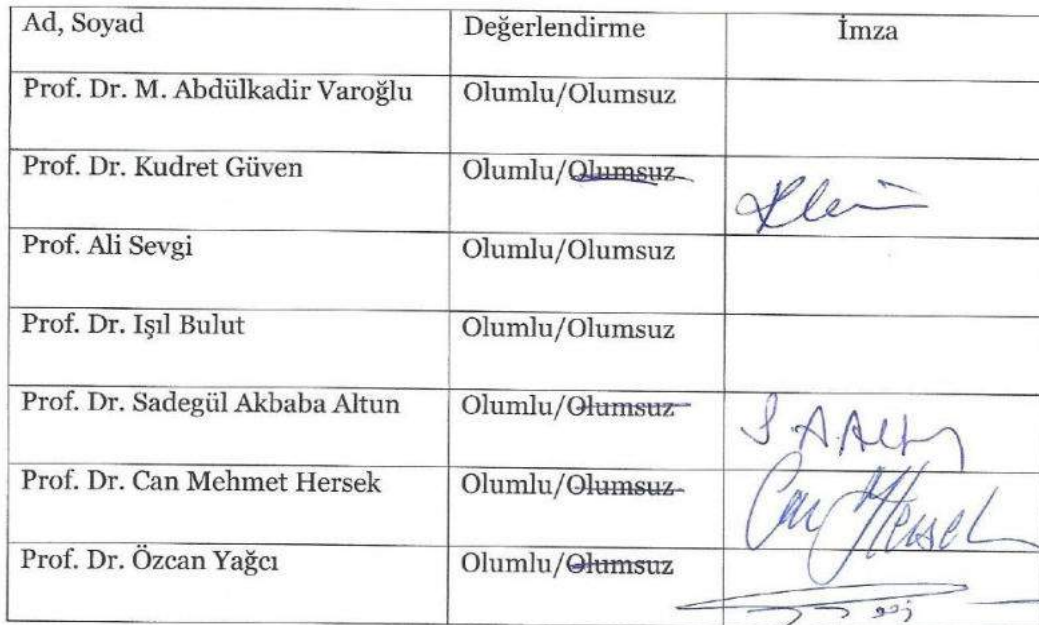 Ad, Soyad Değerlendirme İmza
Prof. Dr. M. Abdülkadir Varoğlu Olumlu/Olumsuz
Prof. Dr. Kudret Güven Olumlu/Olumsuz
Prof. Ali Sevgi Olumlu/Olumsuz
Prof. Dr. Işıl Bulut Olumlu/Olumsuz
Prof. Dr. Sadegül Akbaba Altun Olumlu/Olumsuz
Prof. Dr. Can Mehmet Hersek Olumlu/Olumsuz Can Hersek
Prof. Dr. Özcan Yağcı Olumlu/Olumsuz